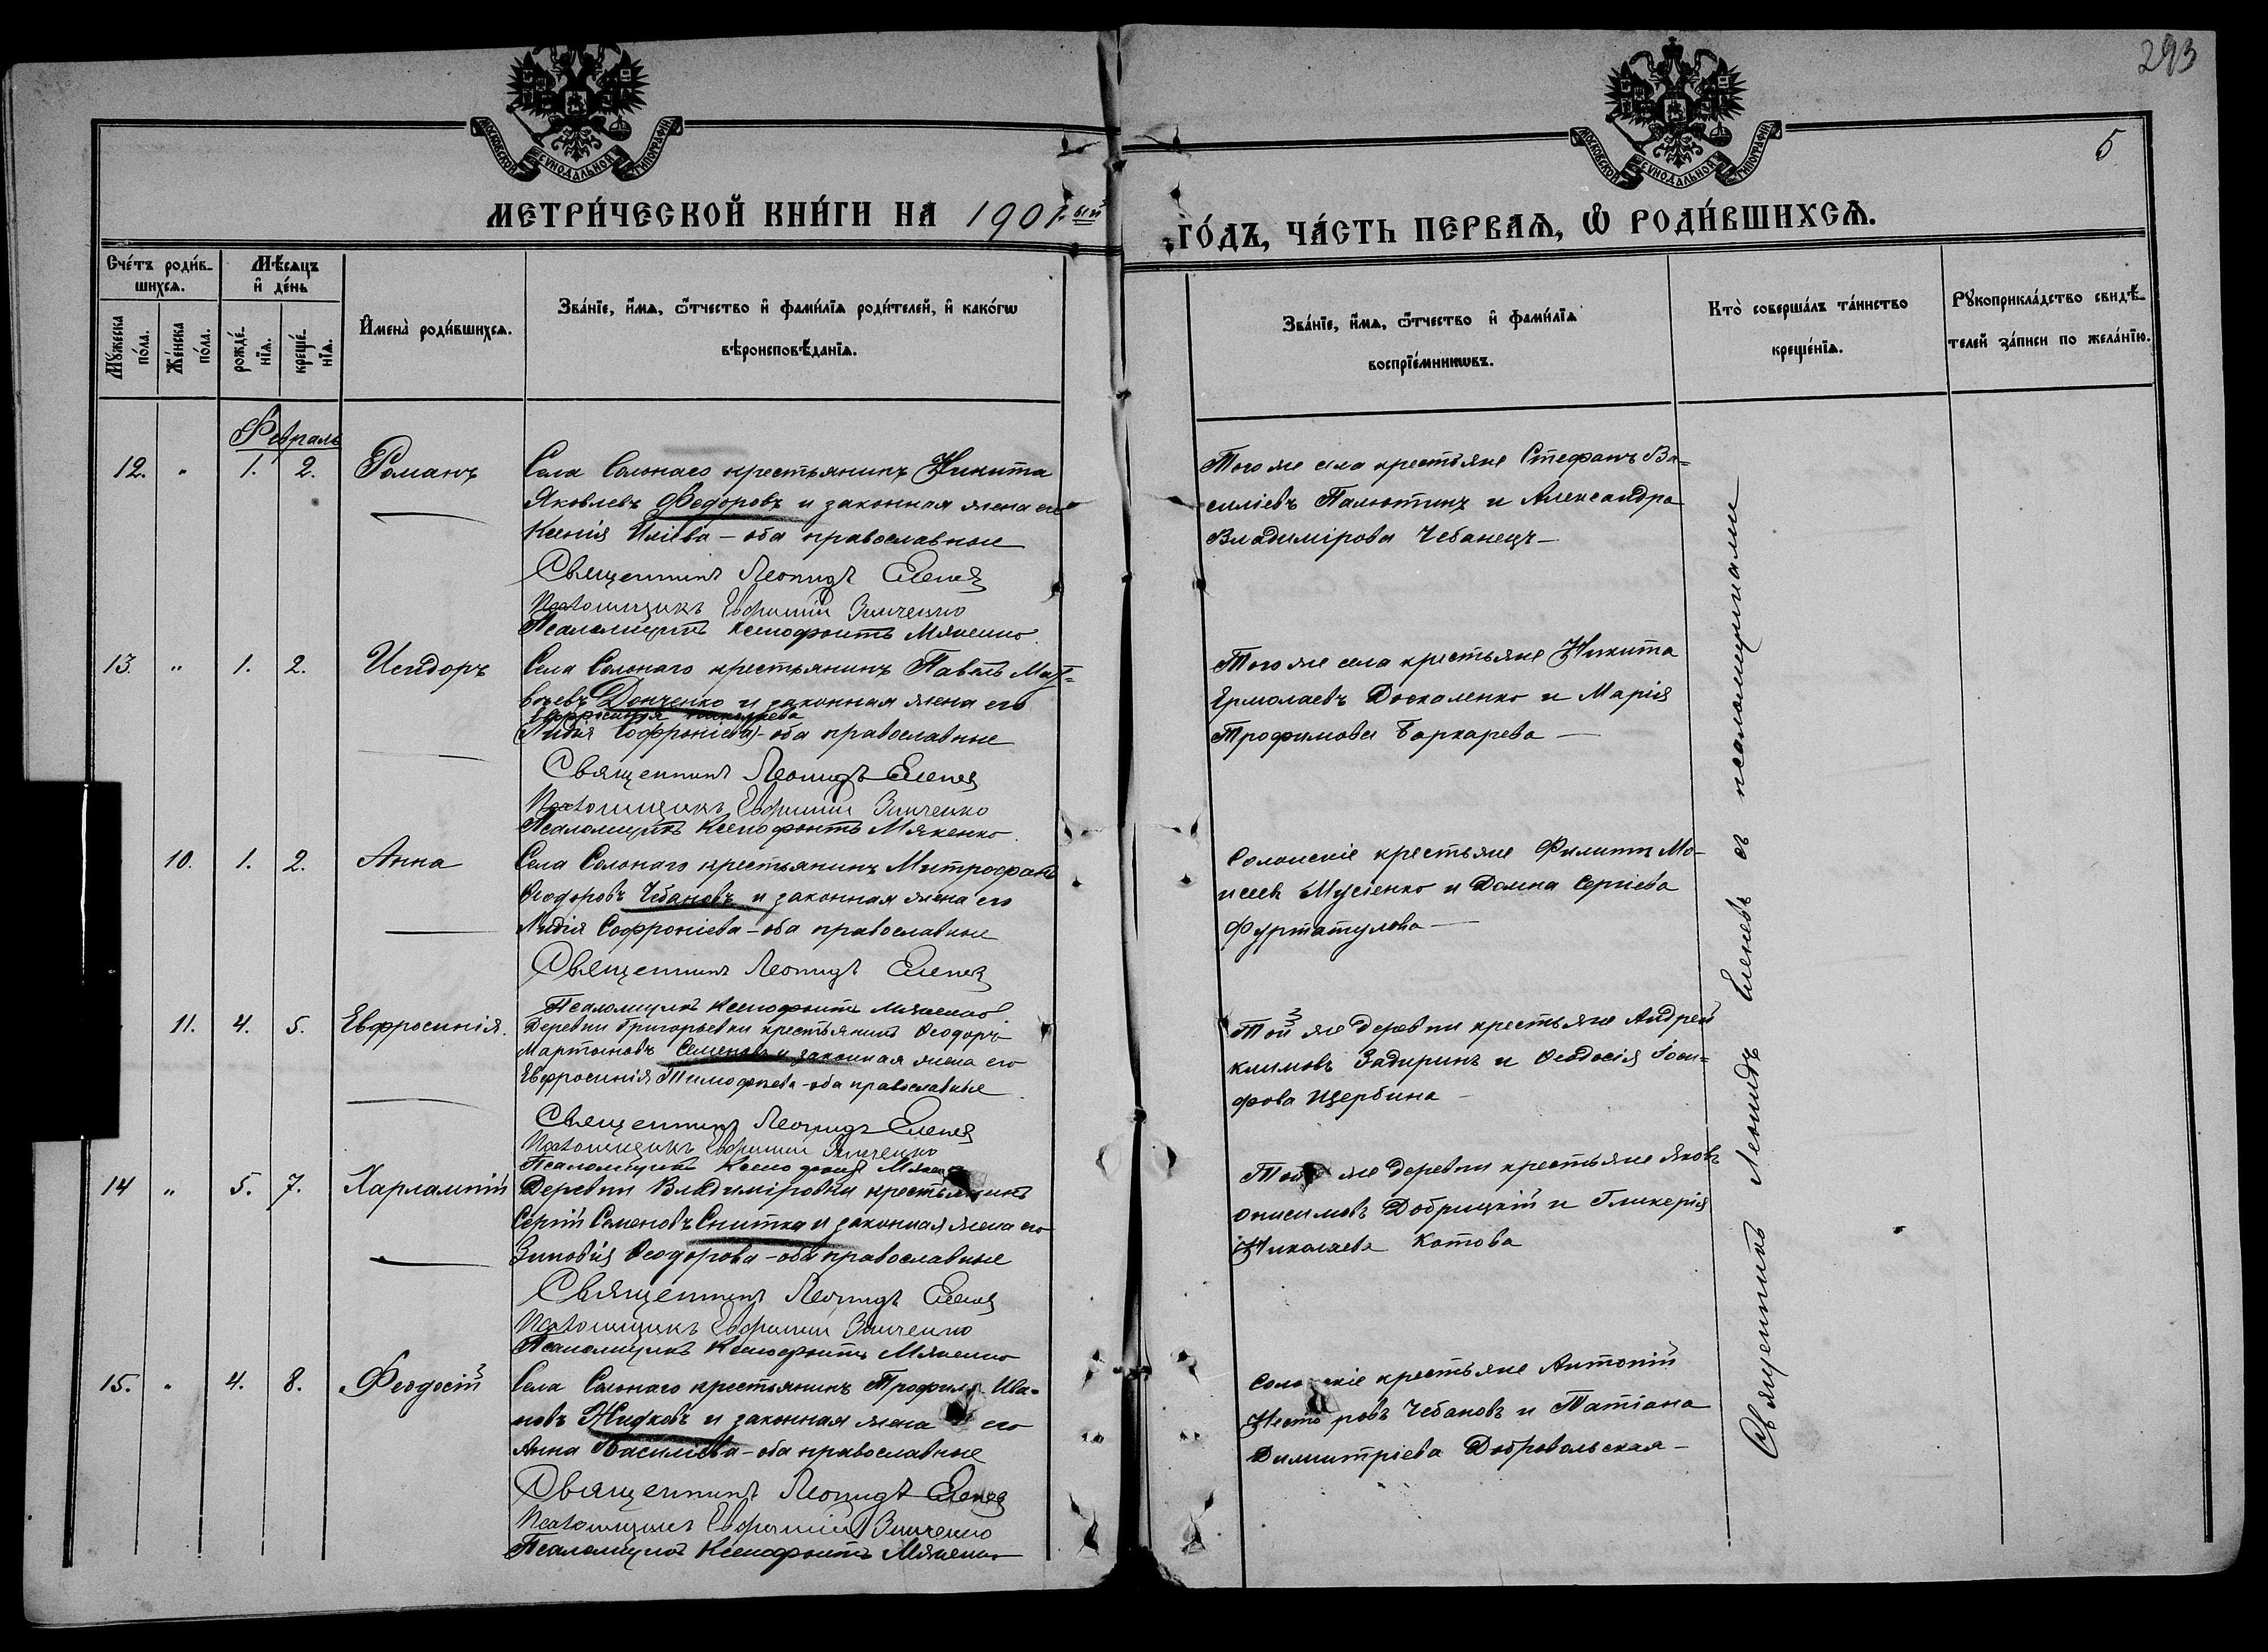 293
5
МОСКОВСКОЙ СѴНОДАЛЬНОЙ ТИПОГРАФІИ
МОСКОВСКОЙ СѴНОДАЛЬНОЙ ТИПОГРАФІИ
МЕТРИ́ЧЕСКОЙ КНИ́ГИ НА 1901-ый
ГО́ДЪ, ЧА́СТЬ ПЕРВАѦ, Ѡ҆ РОДИ́ВШИХСѦ.
Сче́тъ роди́в-
шихсѧ.
Мѣ́сѧцъ
и҆ де́нь
Мꙋ́жеска
по́ла.
Же́нска
по́ла.
рожде́-
нїѧ.
креще́-
нїѧ.
И҆мена̀ роди́вшихсѧ.
Зва́нїе, и҆́мѧ, ѻ҆́тчество и҆ фами́лїѧ роди́телей, и҆ како́гѡ
вѣроисповѣ́данїѧ.
Зва́нїе, и҆́мѧ, ѻ҆́тчество и҆ фами́лїѧ
воспрїе́мникѡвъ.
Кто̀ соверша́лъ та́инство
креще́нїѧ.
Рꙋкоприкла́дство свидѣ́-
телей за́писи по жела́нїю.
Февраль
12. " 1. 2. Романъ
Села Солонаго крестьянинъ Никита
Яковлевъ Федоровъ и законная жена его
Ксенія Иліева – оба православные
Священникъ Леонидъ Еленев
Псаломщикъ Евфимій Зинченко
Псаломщикъ Ксенофонтъ Мякенко
Того же села крестьяне Стефанъ Ва-
силіевъ Палютинъ и Александра
Владимірова Чебанецъ –
13. " 1. 2. Исидоръ
Села Солонаго крестьянинъ Павелъ Мат-
веевъ Донченко и законная жена его
Евфросинія
(Лидія Софроніева) – оба православные
Священникъ Леонидъ Еленев
Псаломщикъ Евфимій Зинченко
Псаломщикъ Ксенофонтъ Мякенко
Того же села крестьяне Никита
Ермолаевъ Доскаленко и Марія
Трофимова Баркарева –
10. 1. 2. Анна
Села Солонаго крестьянинъ Митрофанъ
Ѳеодоровъ Чебановъ и законная жена его
Лидія Софроніева – оба православные
Священникъ Леонидъ Еленев
Псаломщикъ Ксенофонтъ Мякенко
Солонскіе крестьяне Филиппъ Мо-
исеевъ Мусіенко и Домна Сергіева
Фуртатулова –
11. 4. 5. Евфросинія.
Деревни Григорьевки крестьянинъ Ѳеодоръ
Мартыновъ Семеновъ и законная жена его
Евфросинія Тимофеева – оба православные
Священникъ Леонидъ Еленев
Псаломщикъ Евфимій Зинченко
Псаломщикъ Ксенофонтъ
Той же деревни крестьяне Андрей
Климовъ Задиринъ и Ѳеодосія Іоси-
фова Щербина –
14 " 5. 7. Харлампій
Деревни Владиміровки крестьянинъ
Сергій Семеновъ Снитка и законная жена его
Зиновія Ѳеодорова – оба православные
Священникъ Леонидъ Еленев
Псаломщикъ Евфимій Зинченко
Псаломщикъ Ксенофонтъ Мякенко
Той же деревни крестьяне Яковъ
Онисимовъ Добрицкій и Гликерія
Николаева Котова
15. " 4. 8. Феодосій
Села Солонаго крестьянинъ Трофимъ Ива-
новъ Жидковъ и законная жена его
Анна Василіева – оба православные
Священникъ Леонидъ Еленев
Псаломщикъ Евфимій Зинченко
Псаломщикъ Ксенофонтъ Мякенко
Солонскіе крестьяне Антоній
Несторовъ Чебановъ и Татіана
Димитріева Добровольская –
Священникъ Леонидъ Еленевъ съ псаломщиками